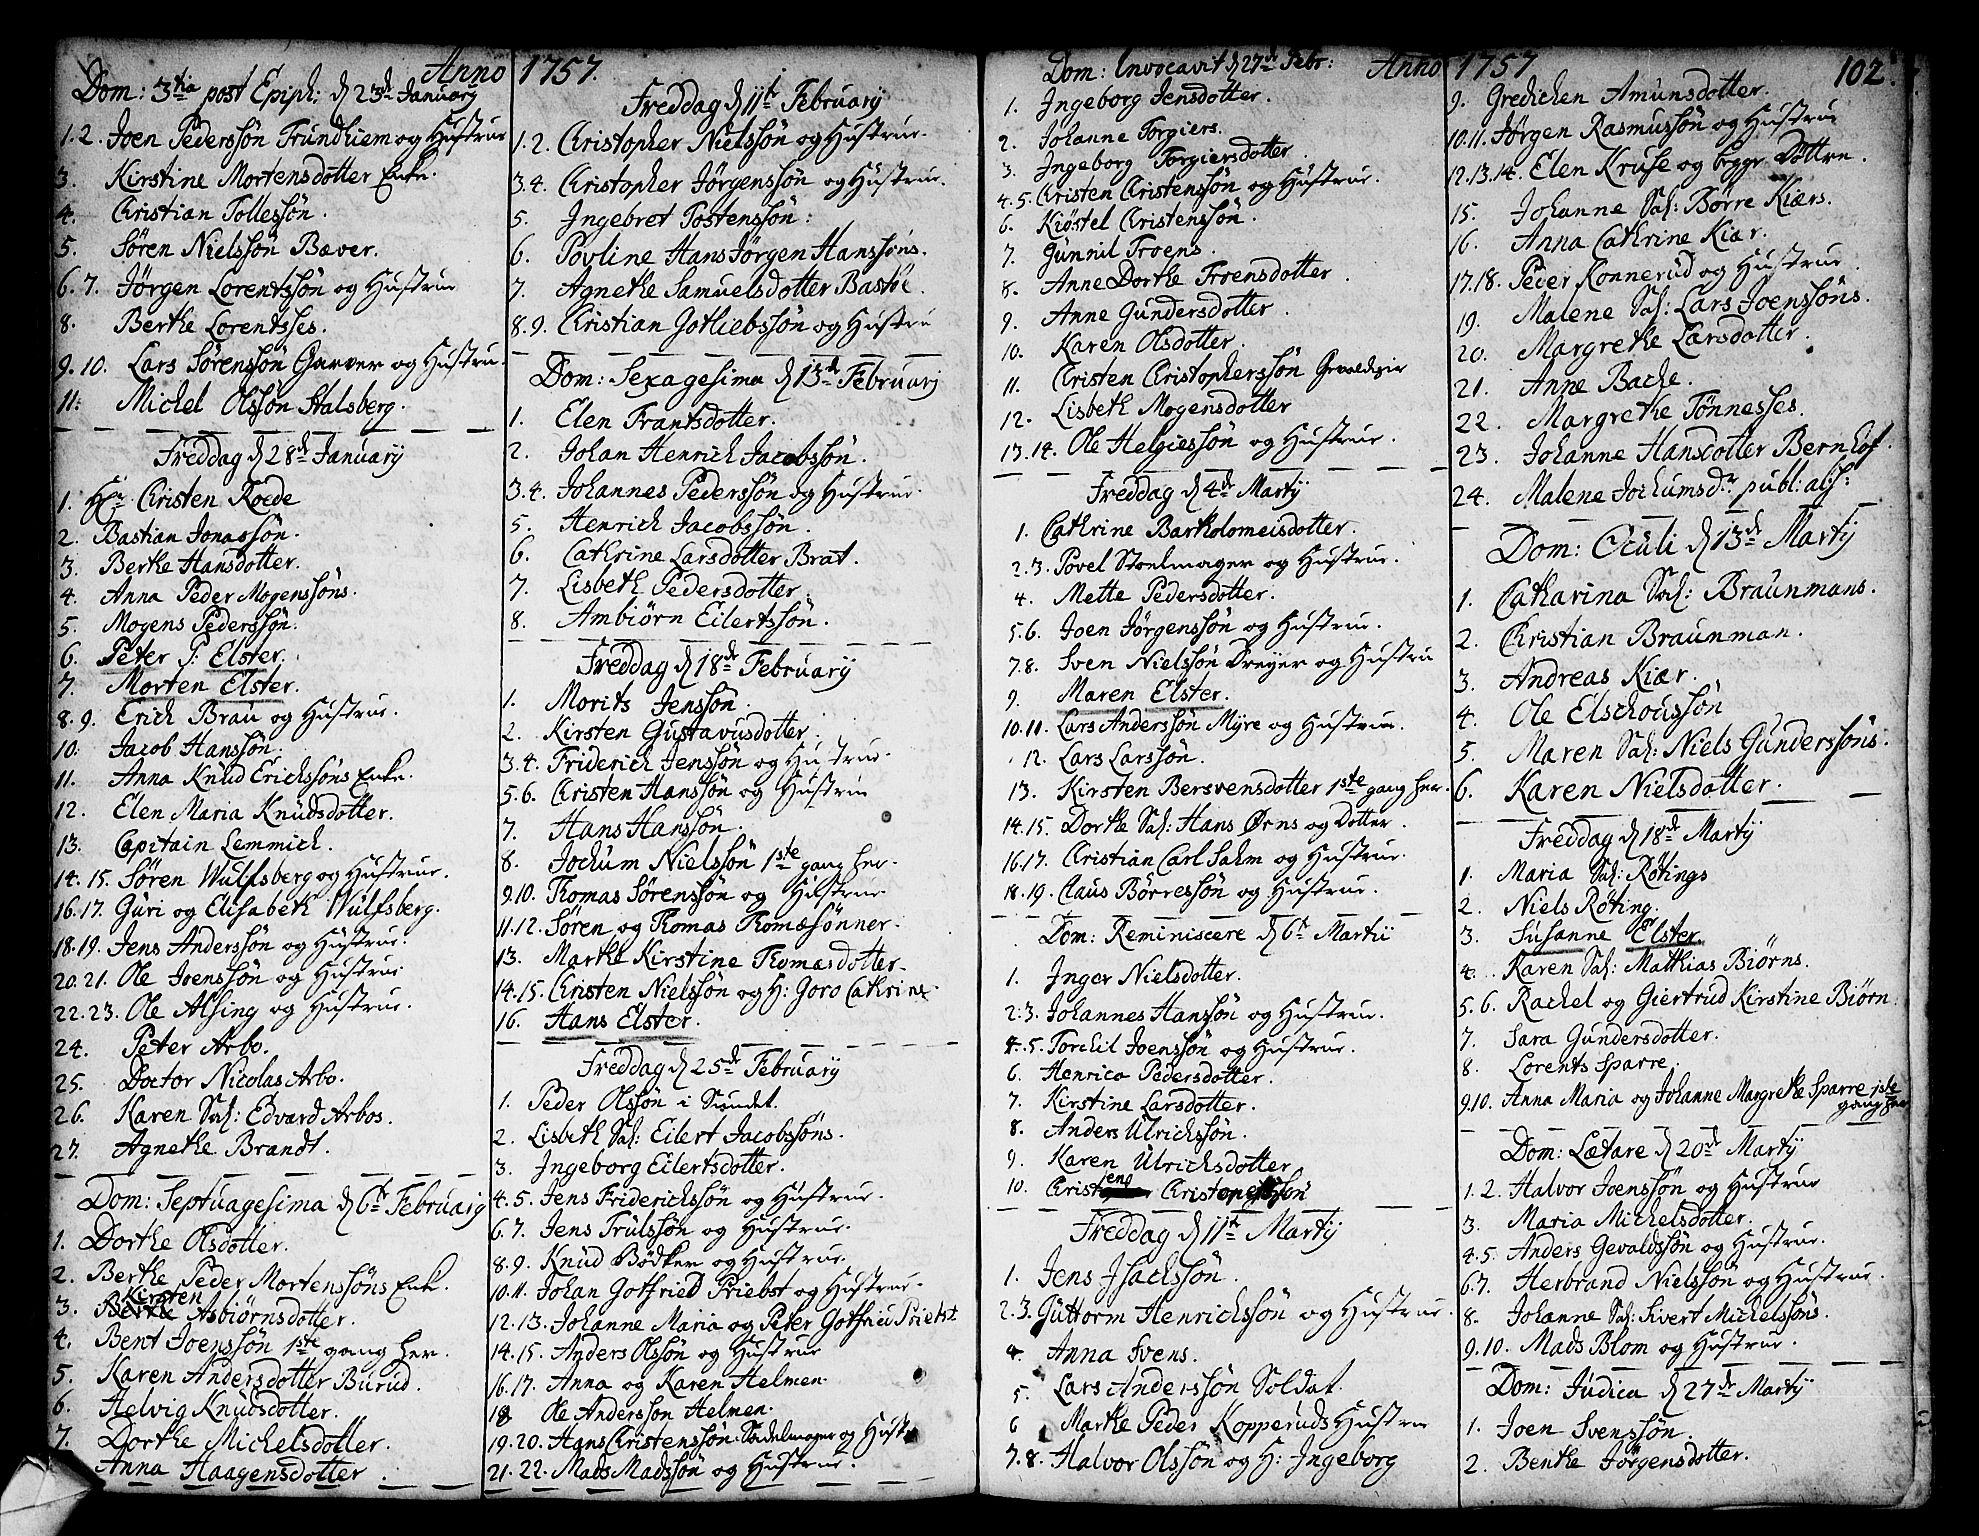 Anno 1757.
Dom: 3tia post Epiph: d 23de January
1.2. Joen Pederssøn Trundhiem og Hustrue
3. Kirstine Mortensdotter Enke.
4. Christian Tollessøn.
5. Søren Nielssøn Bæver.
6.7. Jörgen Lorentssøn og Hustrue
8. Berthe Lorentsses.
9.10. Lars Sørenssøn Garver og Hustrue.
11: Michel Olssøn Stalsberg.
Freddag d 28de January
1. Hr Christen Roede
2. Bastian Jonassøn.
3. Berthe Hansdotter.
4. Anna Peder Mogenssøns.
5. Mogens Pederssøn.
6. Peter P: Elster.
7. Morten Elster.
8.9. Erich Brau og Hustrue.
10. Jacob Hanssøn.
11. Anna Knud Erichssøns Enke.
12. Elen Maria Knudsdotter.
13. Capitain Lemmich.
14.15. Søren Wulfsberg og Hustrue.
16.17. Guri og Elisabeth Wulfsberg.
18.19. Jens Anderssøn og Hustrue.
20.21. Ole Joenssøn og Hustrue
22.23. Ole Alsing og Hustrue.
24. Peter Arbo.
25. Doctor Nicolas Arbo.
26. Karen Sal: Edvard Arbos.
27. Agnethe Brandt.
Dom: Septuagesima d 6te February
1. Dorthe Olsdotter.
2. Berthe Peder Mortenssøns Enke.
3. Kirsten Asbiörnsdotter.
4. Bent Joenssøn 1ste gang her.
5. Karen Andersdotter Burud.
6. Helvig Knudsdotter.
7. Dorthe Michelsdotter.
Anna Haagensdotter.
Freddag d 11te February
1.2. Christopher Nielssøn og Hustrue.
3.4. Christopher Jörgenssøn og Hustrue.
5. Ingebret Tostenssøn:
6. Povline Hans Jörgen Hanssøns.
7. Agnethe Samuelsdotter Bastöe.
8.9. Christian Gotliebssøn og Hustru
Dom: Sexagesima d 13de February
1. Elen Frantsdotter.
2. Johan Henrich Jacobssøn.
3.4. Johannes Pederssøn og Hustrue.
5. Henrich Jacobssøn.
6. Cathrine Larsdotter Brat.
7. Lisbeth Pedersdotter.
8. Ambiörn Eilertssøn.
Freddag d 18de February
1. Morits Jenssøn.
2. Kirsten Gustavusdotter.
3.4. Friderich Jenssøn og Hustrue.
5.6. Christen Hanssøn og Hustrue
7. Hans Hanssøn.
8. Jochum Nielssøn 1ste gang her.
9.10. Thomas Sørenssøn og Hustrue
11.12. Søren og Thomas Thomæsønner.
13. Marthe Kirstine Thomasdotter.
14.15. Christen Nielssøn og H: Goro Cathrine.
16. Hans Elster.
Freddag d 25de February
1. Peder Olssøn i Sundet.
2. Lisbeth Sal: Eilert Jacobssøns.
3. Ingeborg Eilertsdotter.
4.5. Jens Friderichssøn og Hustrue.
6.7. Jens Trulssøn og Hustrue.
8.9. Knud Bødker og Hustrue.
10.11. Johan Gotfried Priebst og Hustrue.
12.13. Johanne Maria og Peter Gotfried Priebst
14.15. Anders Olssøn og Hustrue
16.17. Anna og Karen Helmen.
18. Ole Anderssøn Helmen.
19.20. Hans Christenssøn Sadelmager og Hust.
21.22. Mads Madssøn og Hustrue.
Anno 1757
102.
Dom: Invocavit d 27de Febr:
1. Ingeborg Jensdotter.
2. Johanne Torgiers.
3. Ingeborg Torgiersdotter
4.5. Christen Christenssøn og Hustrue.
6. Kiöstel Christenssøn.
7. Gunnil Troens.
8. Anne Dorthe Troensdotter.
9. Anne Gundersdotter.
10. Karen Olsdotter.
11. Christen Christopherssøn Gevaldiger
12. Lisbeth Mogensdotter
13.14. Ole Helgiessøn og Hustrue.
Freddag d 4de Marty
1. Cathrine Bartholomeisdotter.
2.3. Povel Stoelmager og Hustrue.
4. Mette Pedersdotter.
5.6. Joen Jörgenssøn og Hustrue.
7.8. Sven Nielssøn Dreyer og Hustru
9. Maren Elster.
10.11. Lars Anderssøn Myre og Hustrue.
12. Lars Larssøn.
13. Kirsten Bersvensdotter 1ste gang her.
14.15. Dorthe Sal: Hans Ørns og Dotter.
16.17. Christian Carl Sahm og Hustrue.
18.19. Claus Börressøn og Hustrue.
Dom: Reminiscere d 6te Martii
1. Inger Nielsdotter.
2.3. Johannes Hanssøn og Hustrue.
4.5. Torchil Joenssøn og Hustrue.
6. Henrica Pedersdotter.
7. Kirstine Larsdotter.
8. Anders Ulrichssøn.
9. Karen Ulrichsdotter
10. Christens Christenssøn
Freddag d 11te Marty
1. Jens Jsachssøn.
2.3. Guttorm Henrichssøn og Hustrue.
4. Anna Svens.
5. Lars Anderssøn Soldat.
6 Marthe Peder Kopperuds Hustrue
7.8. Halvor Olssøn og H: Ingeborg
9. Gredichen Amunsdotter.
10.11. Jörgen Rasmussøn og Hustrue
12.13.14. Elen Kruse og begge Döttre.
15. Johanne Sal: Börre Kiærs.
16. Anna Cathrine Kiær.
17.18. Peder Konnerud og Hustrue.
19. Malene Sal: Lars Joenssøns.
20. Margrethe Larsdotter.
21. Anne Bache.
22. Margrethe Tönnesses.
23. Johanne Hansdotter Bernhof.
24. Malene Jochumsdr publ: abs:
Dom: Oculi d 13de Marty
1. Catharina Sal: Braunmans.
2. Christian Braunman.
3. Andreas Kiær.
4. Ole Elschoussøn
5. Maren Sal: Niels Gunderssøns.
6. Karen Nielsdotter.
Freddag d 18de Marty
1. Maria Sal: Røtings
2. Niels Røting.
3. Susanne Elster.
4. Karen Sal: Mathias Biørns.
5.6. Rachel og Giertrud Kirstine Biørn.
7. Sara Gundersdotter.
8. Lorents Sparre.
9.10. Anna Maria og Johanne Margrethe Sparre 1ste
gang her
Dom: Lætare d 20de Marty
1.2. Halvor Joenssøn og Hustrue
3. Maria Michelsdotter.
4.5. Anders Gevaldssøn og Hustrue.
6.7. Herbrand Nielssøn og Hustrue.
8. Johanne Sal: Sivert Michelssøns.
9.10. Mads Blom og Hustrue.
Dom: Judica d 27de Marty
1. Joen Svenssøn.
2. Benthe Jörgensdotter.